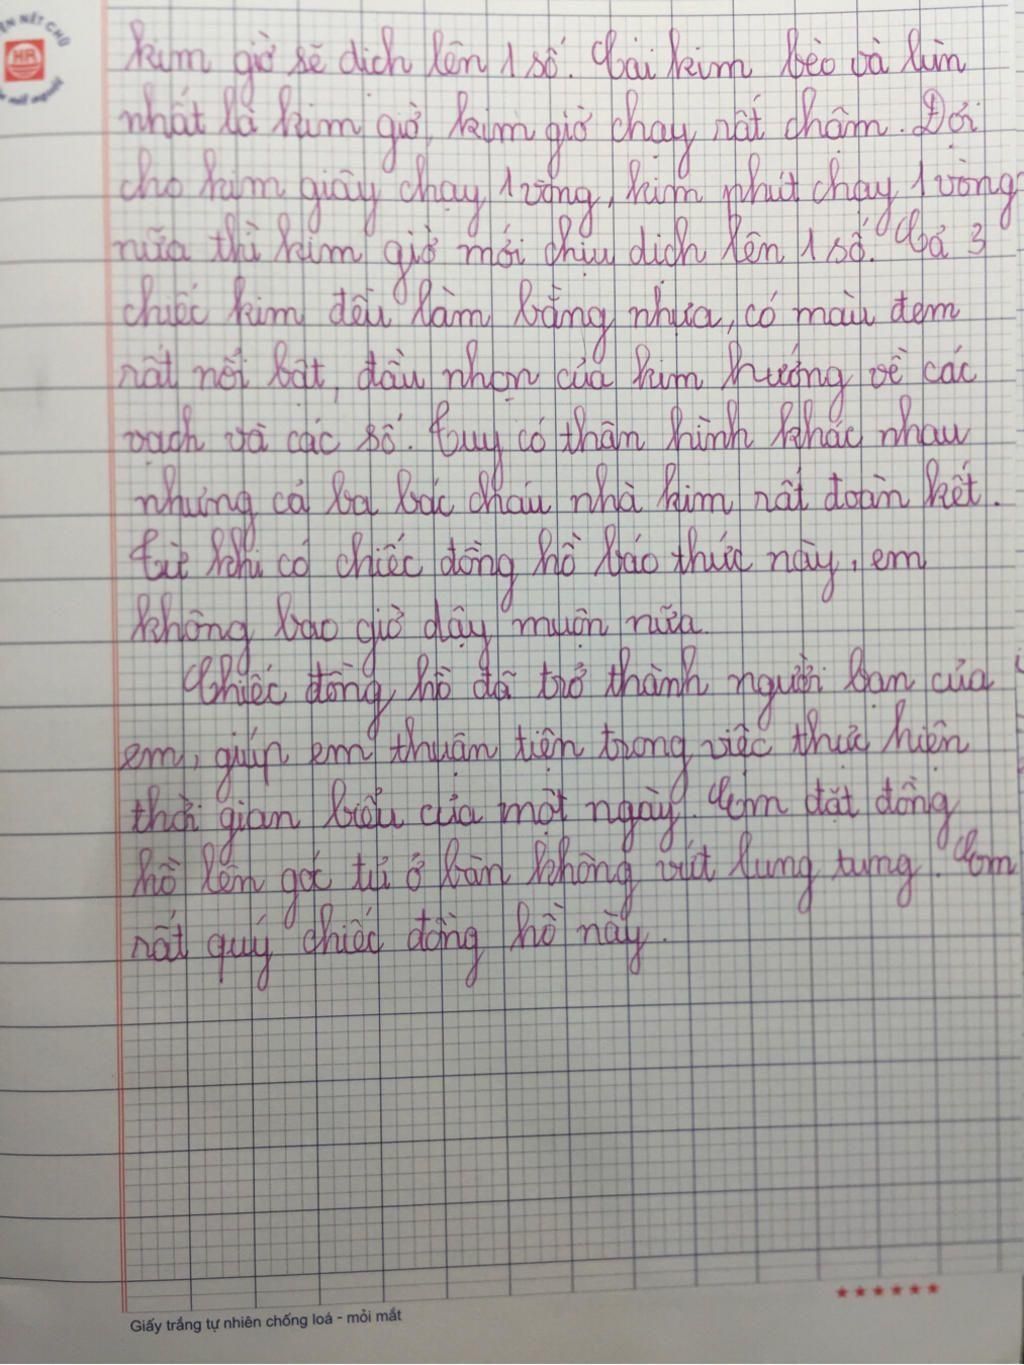 ÊN NÉT CHỮ
HR
kim giờ sẽ dịch lên 1 số. Cái kim béo và lùn
nhất là kim giờ, kim giờ chạy rất chậm. Đợi
cho kim giây chạy 1 vòng, kim phút chạy 1 vòng
nữa thì kim giờ mới chịu dịch lên 1 số. Cả 3
chiếc kim đều làm bằng nhựa, có màu đem
rất nổi bật, đầu nhọn của kim hướng về các
vạch và các số. Tuy có thân hình khác nhau
nhưng cả ba bác cháu nhà kim rất đoàn kết.
Từ khi có chiếc đồng hồ báo thức này, em
không bao giờ dậy muộn nữa.
Chiếc đồng hồ đã trở thành người bạn của
em, giúp em thuận tiện trong việc thực hiện
thời gian biểu của một ngày. Em đặt đồng
hồ lên góc tủ ở bàn không vứt lung tung. Em
rất quý chiếc đồng hồ này.
Giấy trắng tự nhiên chống loá - mỏi mắt